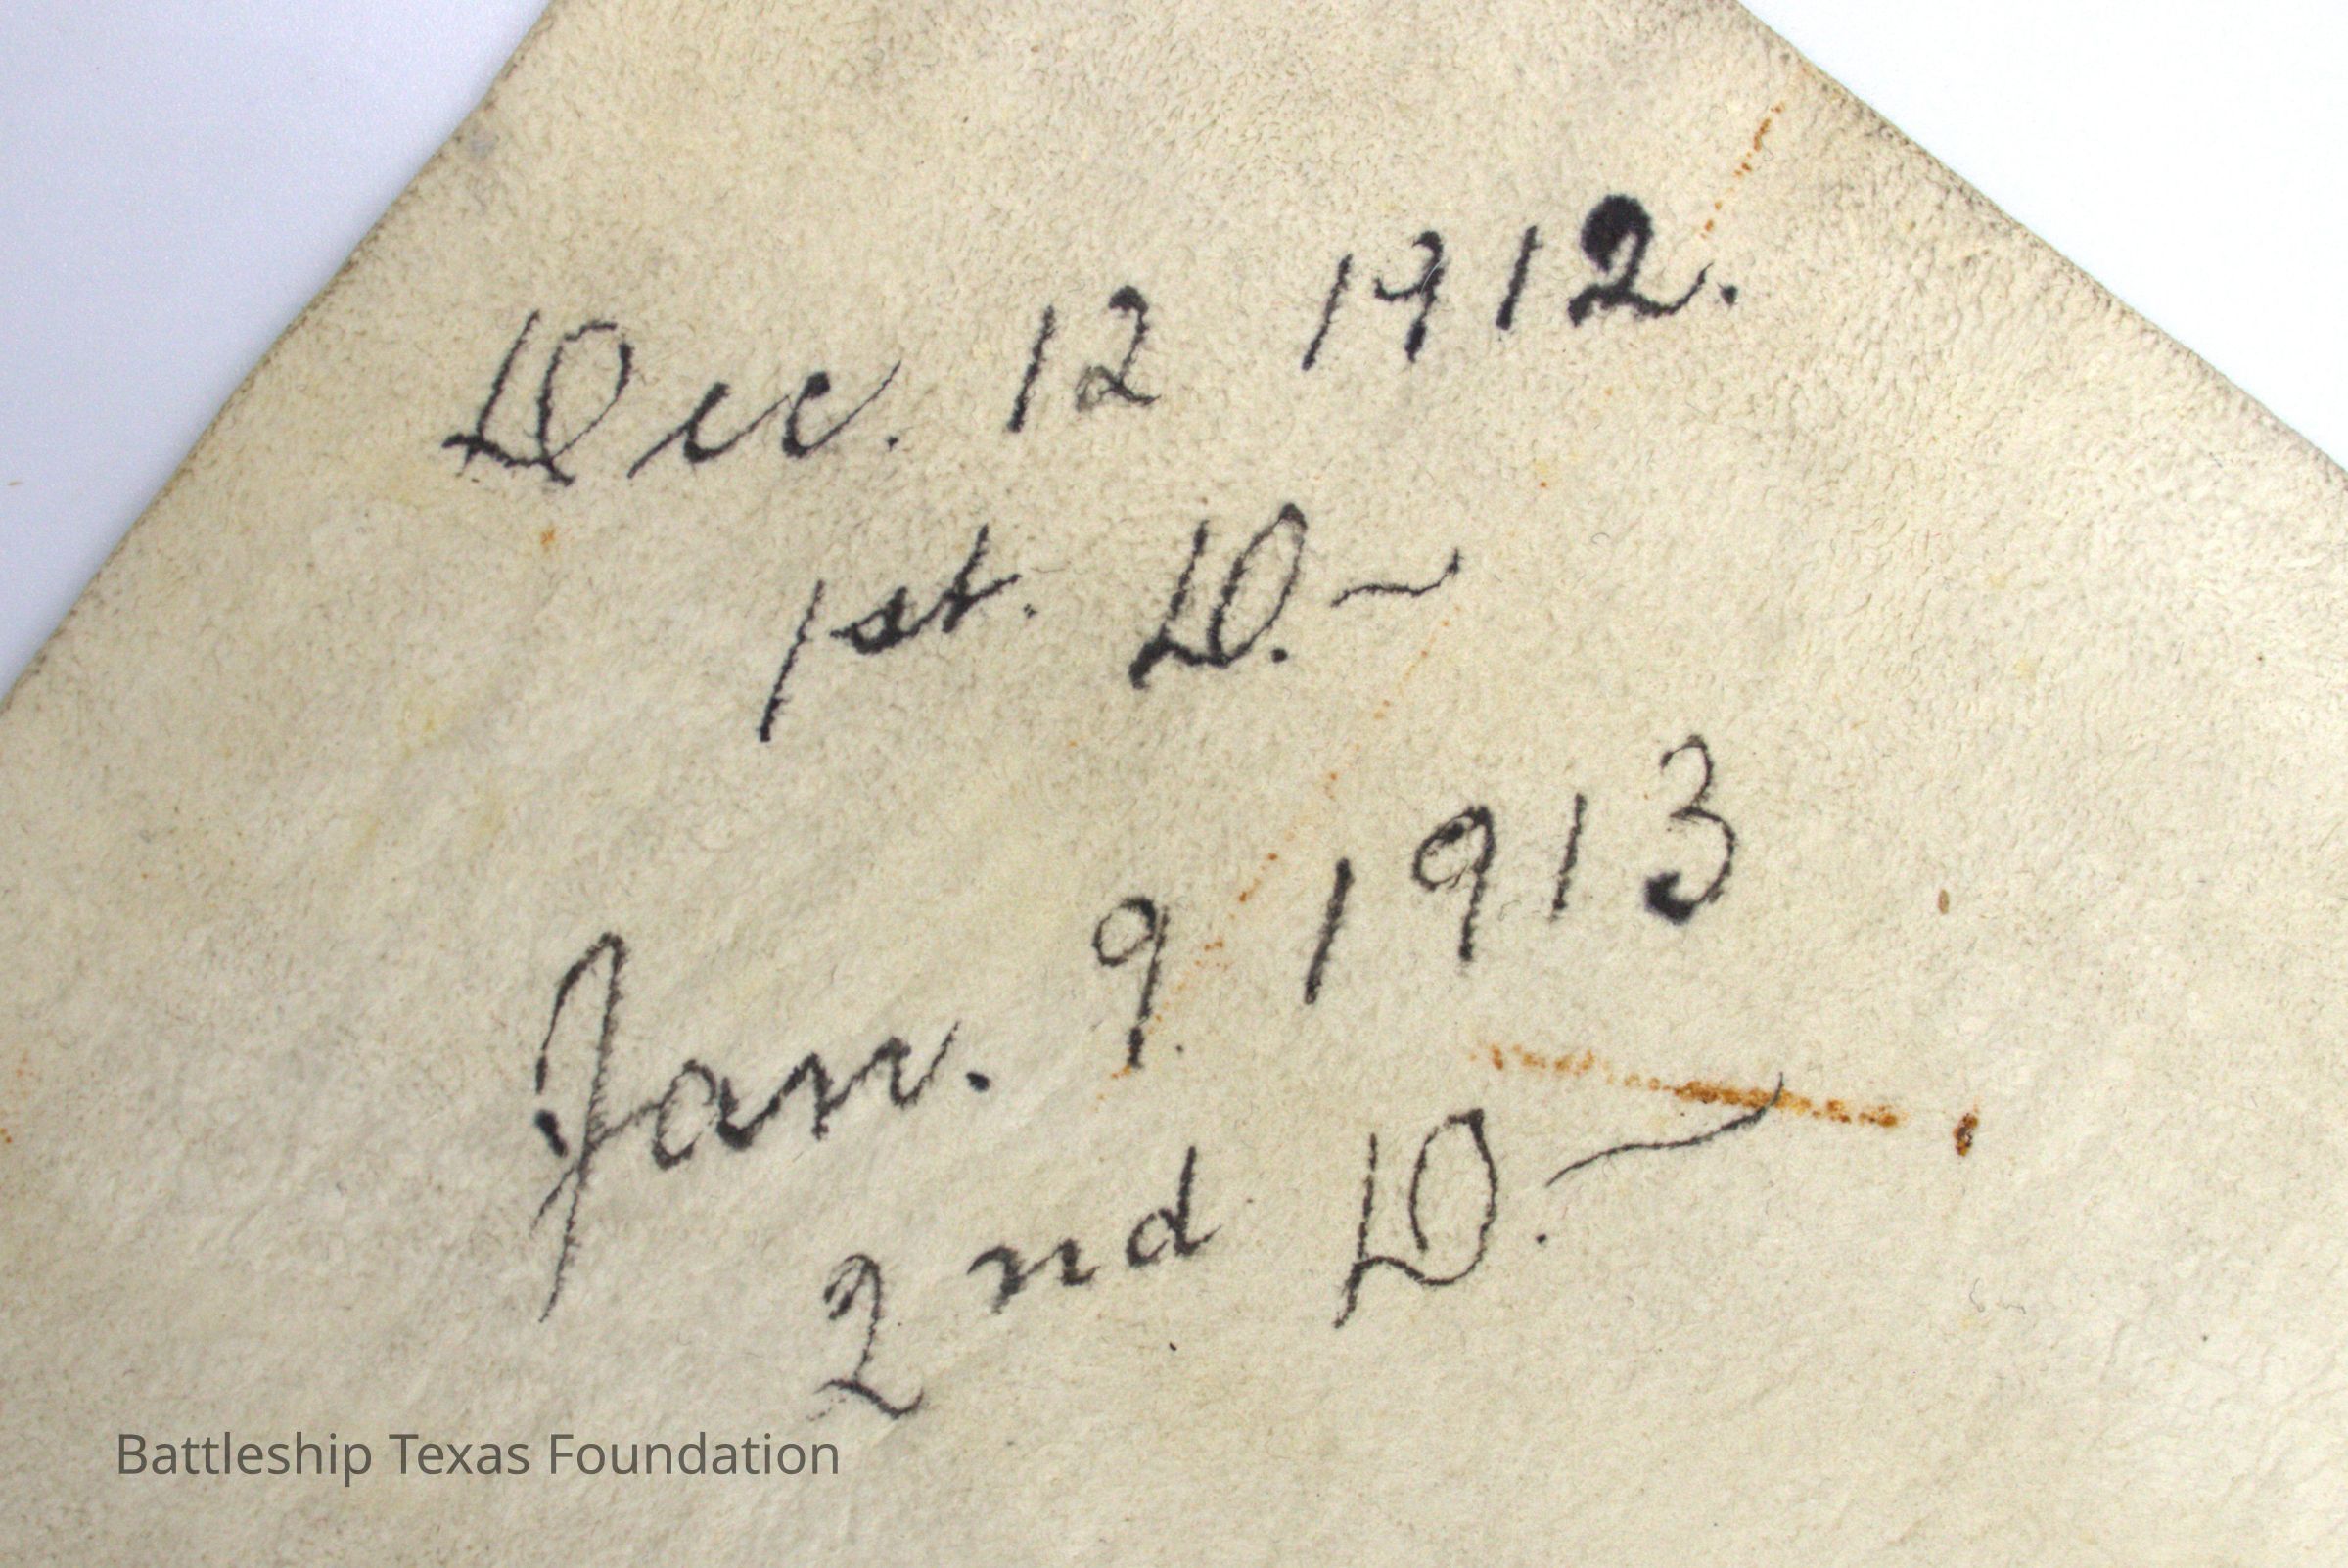 Dec. 12 1912.
1st. D.~
Jan. 9. 1913
2nd D.~
Battleship Texas Foundation